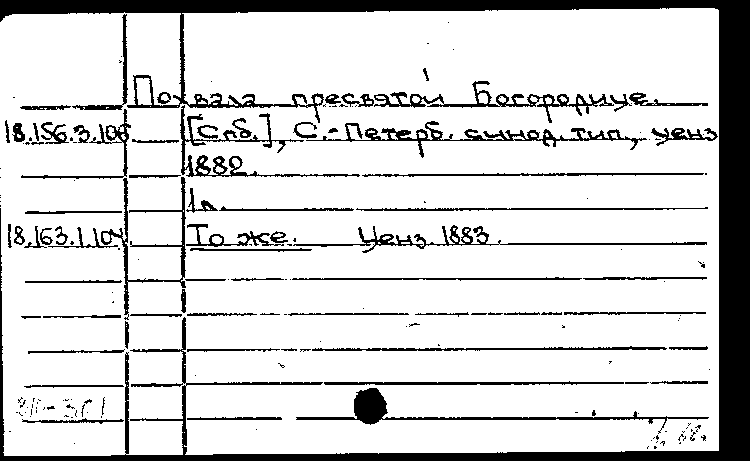 Похвала пресвятой Богородице.
18.156.3.106 [Спб.], С.-Петерб. синод. тип., ценз
1882.
1 л.
18.163.1.104. То же. Ценз. 1883.